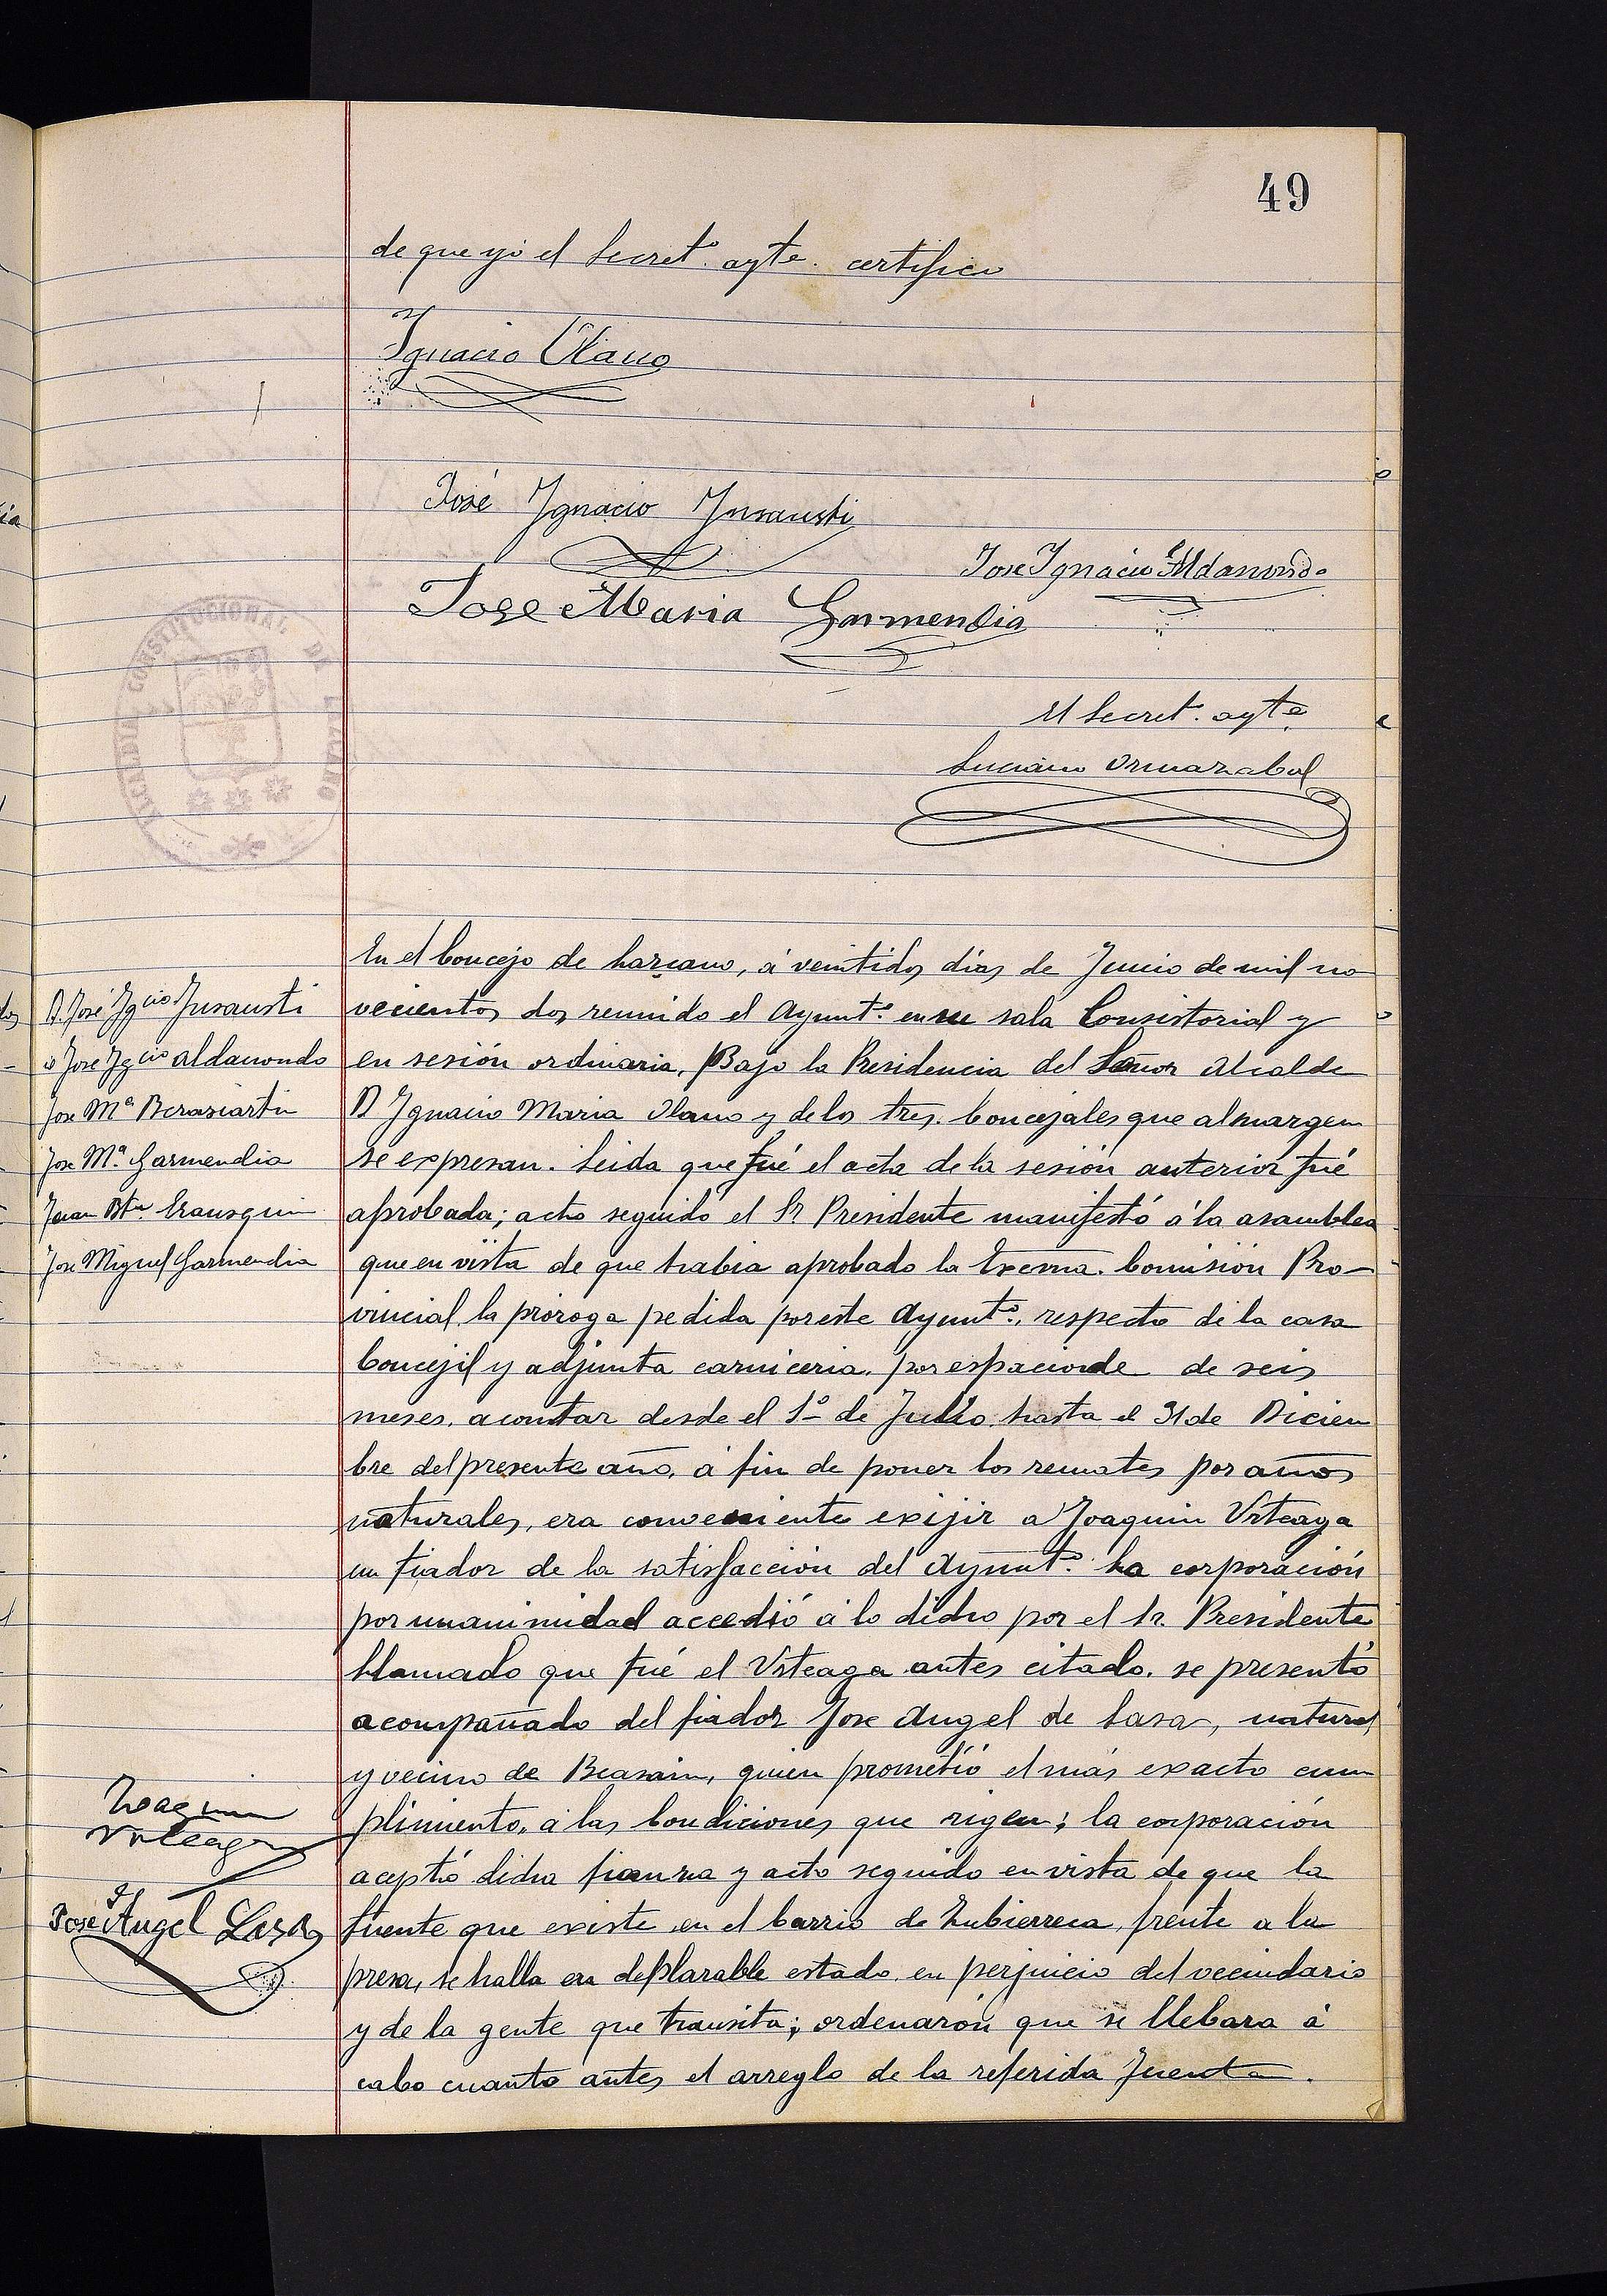 49
de que yó el Secret.º ayto. certifico
Ygnacio Olano
José Ygnacio Ynsausti
Jose Ygnacio Aldanondo
Jose Maria Garmendia
El Secret. ayto
Luciano Ormazabal
ALCALDIA CONSTITUCIONAL DE LAZCANO
En el Concejo de Lazcano, á veintidos dias de Junio de mil no
vecientos dos reunido el Ayunt.º en su sala Consistorial y
en sesión ordinaria, Bajo la Presidencia del Señor Alcalde
D Ygnacio Maria Olano y de los tres. Concejales que al margen
se expresan. Leida que fué el acta de la sesión anterior fué
aprobada; acto seguido el Sr Presidente manifestó á la asamblea
que en vista de que habia aprobado la Excma. Comisión Pro-
vincial, la próroga pedida por este Ayunt.º, respecto de la casa
Concejil y adjunta carniceria, por espacio de de seis
meses, acontar desde el 1º de Julio hasta el 31 de Diciem
bre del presente año, á fin de poner los remates por años
naturales, era conveniente exijir a Joaquin Urteaga
un fiador de la satisfacción del Ayunt.º La corporación
por unanimidad accedió á lo dicho por el Sr. Presidente
Llamado que fué el Urteaga antes citado, se presentó
acompañado del fiador Jose Angel de Lasa, natural
y vecino de Beasain, quien prometió el más exacto cum
plimiento, á las Condiciones que rigen; la corporación
aceptó dicha fianza y acto seguido en vista de que la
fuente que existe en el barrio de Zubierreca, frente a la
presa, se halla en deplarable estado, en perjuicio del vecindario
y de la gente que transita; ordenarón que se llebara á
cabo cuanto antes el arreglo de la referida fuente.
D. José Ygcio Ynsausti
" Jose Ygcio Aldanondo
Jose Mª Berasiartu
Jose Mª Garmendia
Juan Btª Erausquin
Jose Miguel Garmendia
Joaquin
Urteaga
Jose Angel Lasa